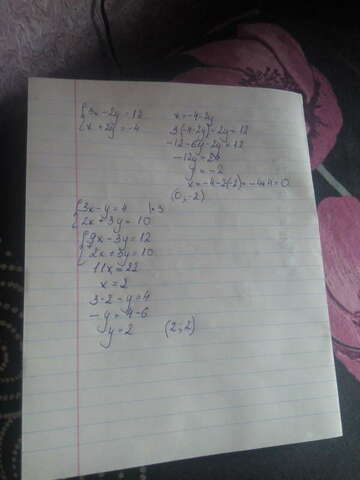 {3x-2y=12
{x+2y=-4
x=-4-2y
3(-4-2y)-2y=12
-12-6y-2y=12
-12y=24
y=-2
x=-4-2(-2)=-4+4=0
(0,-2)
{3x-y=4 |·3
{2x+3y=10
{9x-3y=12
{2x+3y=10
11x=22
x=2
3·2-y=4
-y=4-6
y=2 (2;2)